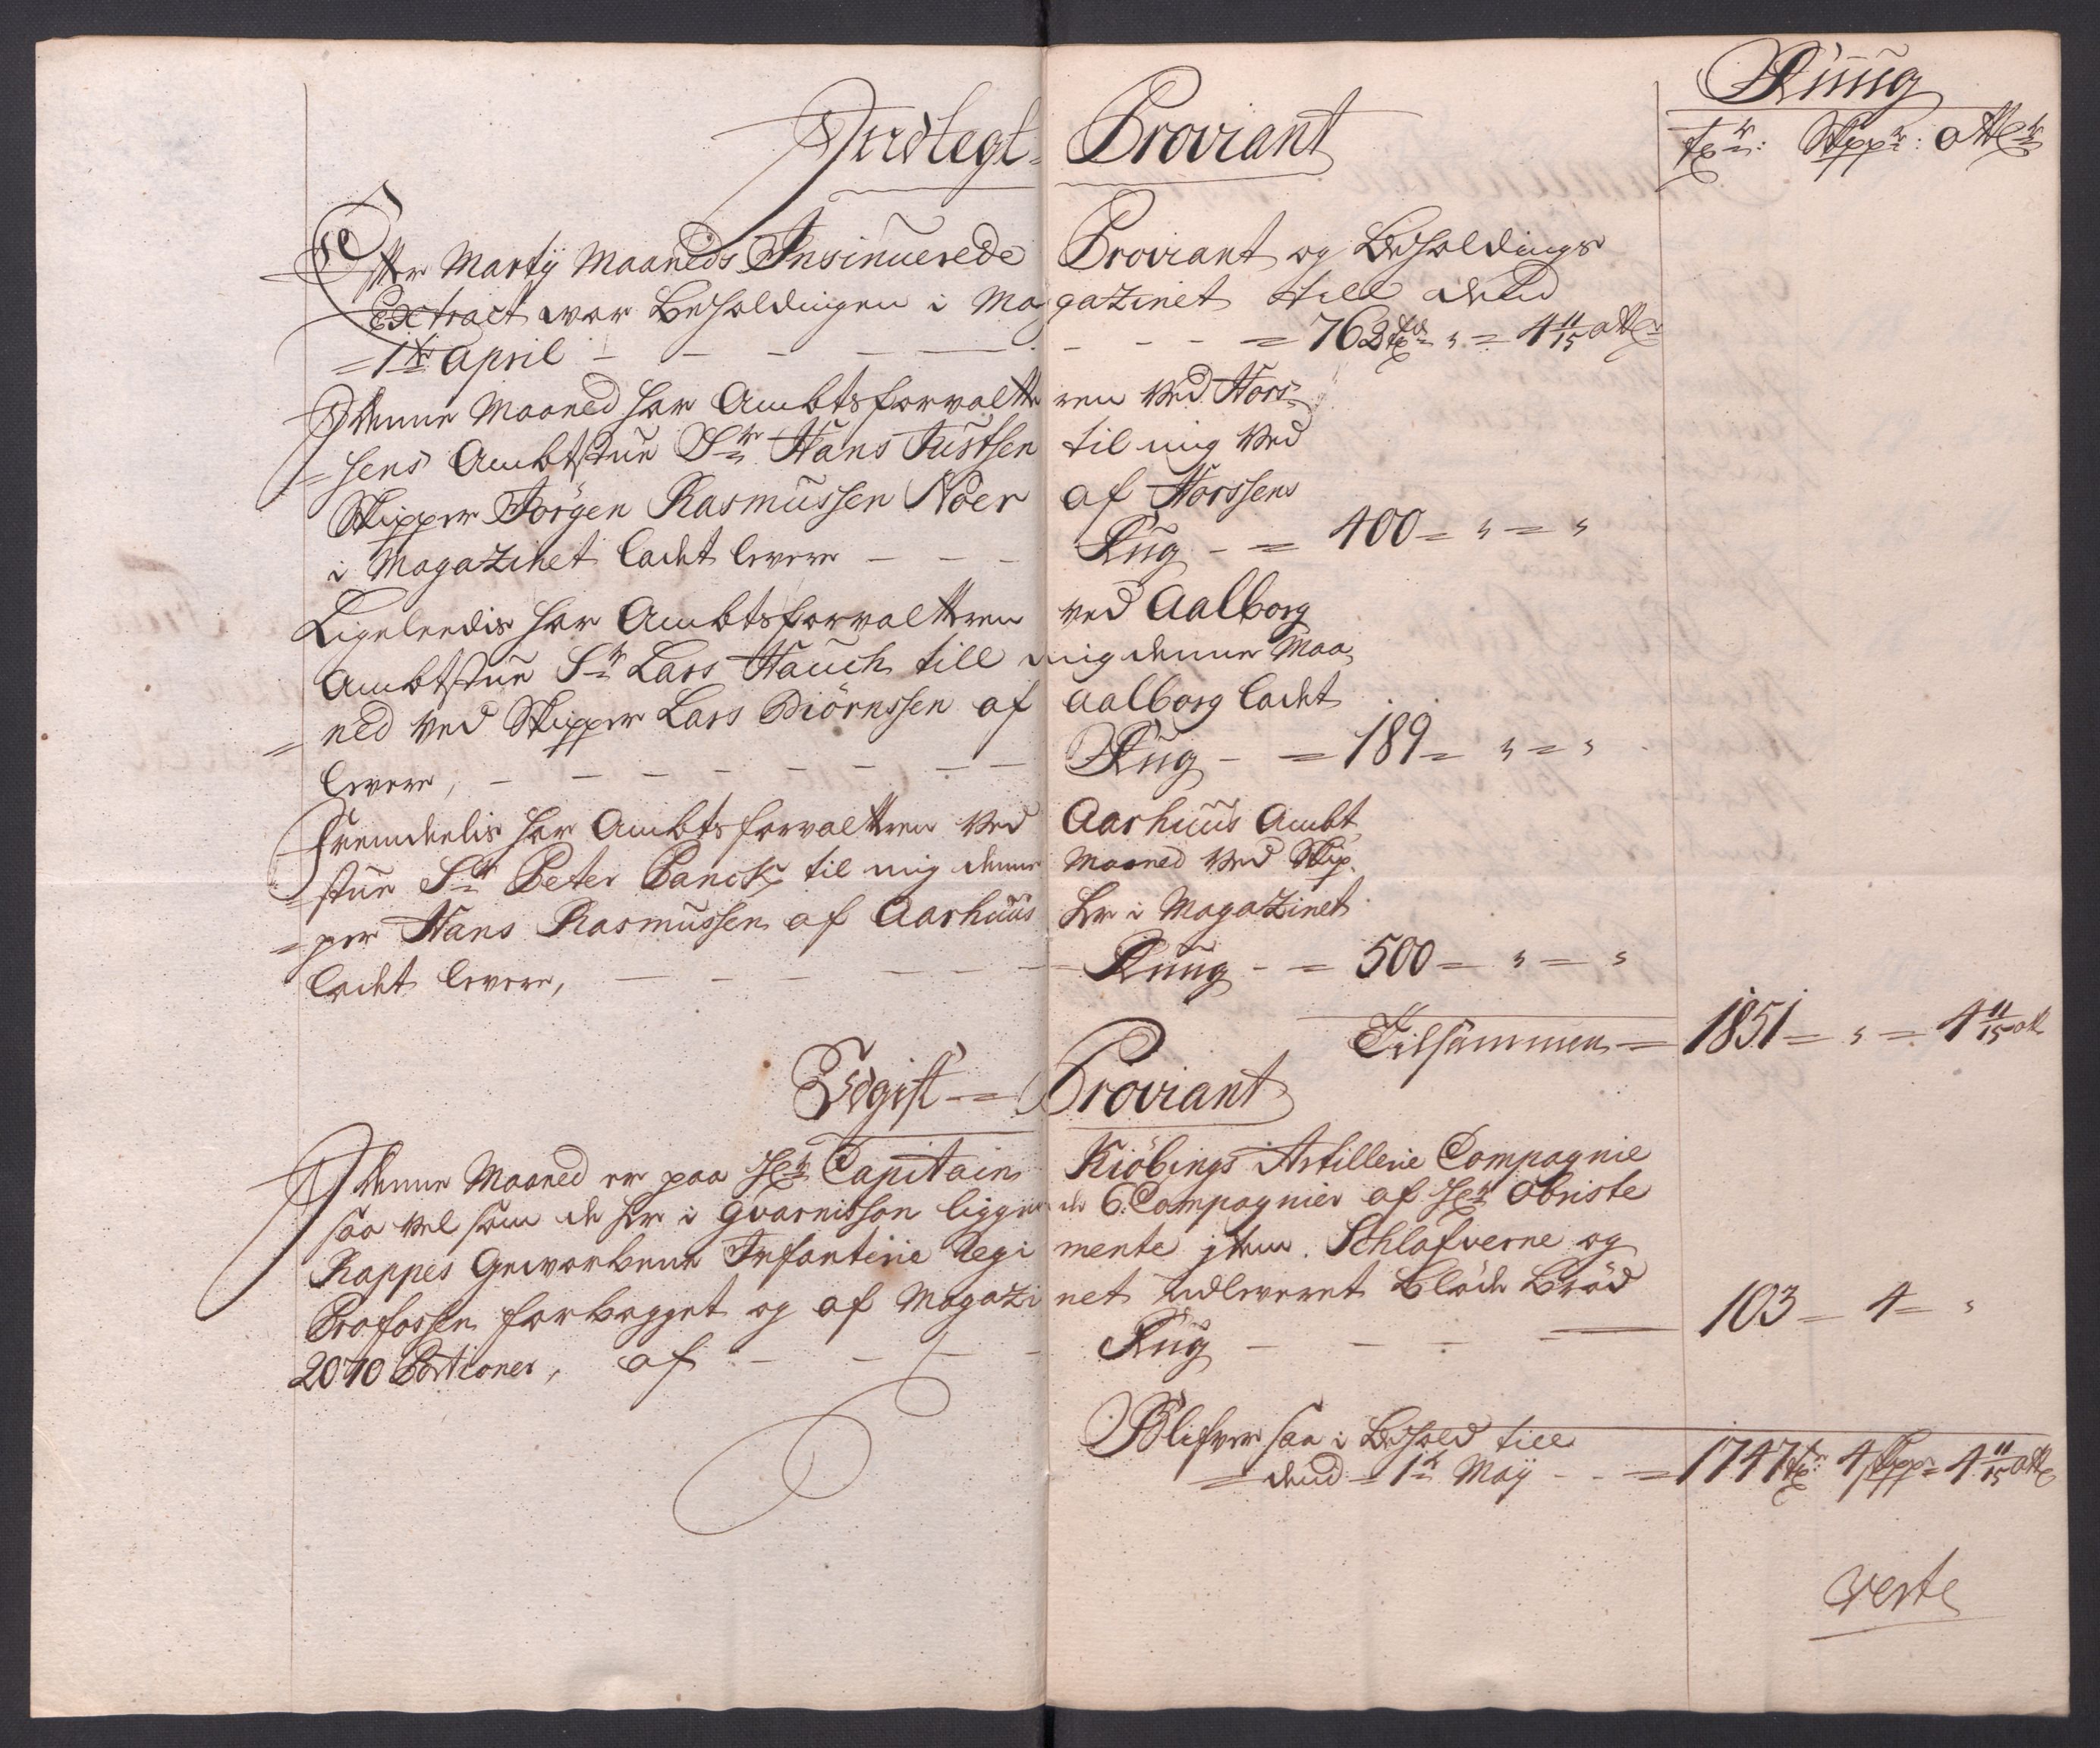 Ruug
Indtegt= Proviant
tr: Skppr: otter
Efter Martij Maaneds Insinuerede Proviant og Beholdings
Extract war Beholdingen i Magazinet till dend
= 1te April — — — — — — — — = 762 tdr „ = 4 11/15 otter
I denne Maaned har Ambtsforvaltteren ved Hors=
=sens Ambtstue Sr Hans Justsen til mig ved
Skipper Jörgen Rasmussen Noer af Horssens
i Magazinet ladet levere — — — Rug — = 400 = „ = „
Ligeleedis har Ambtsforvaltteren ved Aalborg
Ambtstue Sr Lars Hauch till mig denne Maa,
=ned ved Skipper Lars Biörnssen af Aalborg ladet
levere, — — — — — — — — Rug — = 189 = „ = „
Fremdeelis har Ambtsforvaltteren ved Aarhuus Ambt,
=stue Sr Peter Panck til mig denne Maaned ved Skip,
=per Hans Rasmussen af Aarhuus her i Magazinet
ladet levere, — — — — — — Ruug — = 500 = „ = „
Tilsammen = 1851 = „ = 4 11/15 ott
Udgift = Proviant
I denne Maaned er paa Hr Capitain Kiöbings Artillerie Compagnie
saa vel som de her i Gvarnitson liggende 6 Compagnier af Hr Obriste
Kappes Geworbene Infanterie Regimente jtem Schlafverne og
Profossen forbagget og af Magazinet udleveret blöde bröd
2070 Portioner, af — — — — Rug — — — 103 — 4 — „
Blifver saa i Behold till
= dend = 1te Maÿ — — = 1747 tr: 4 skppr = 4 11/15 otter
verte